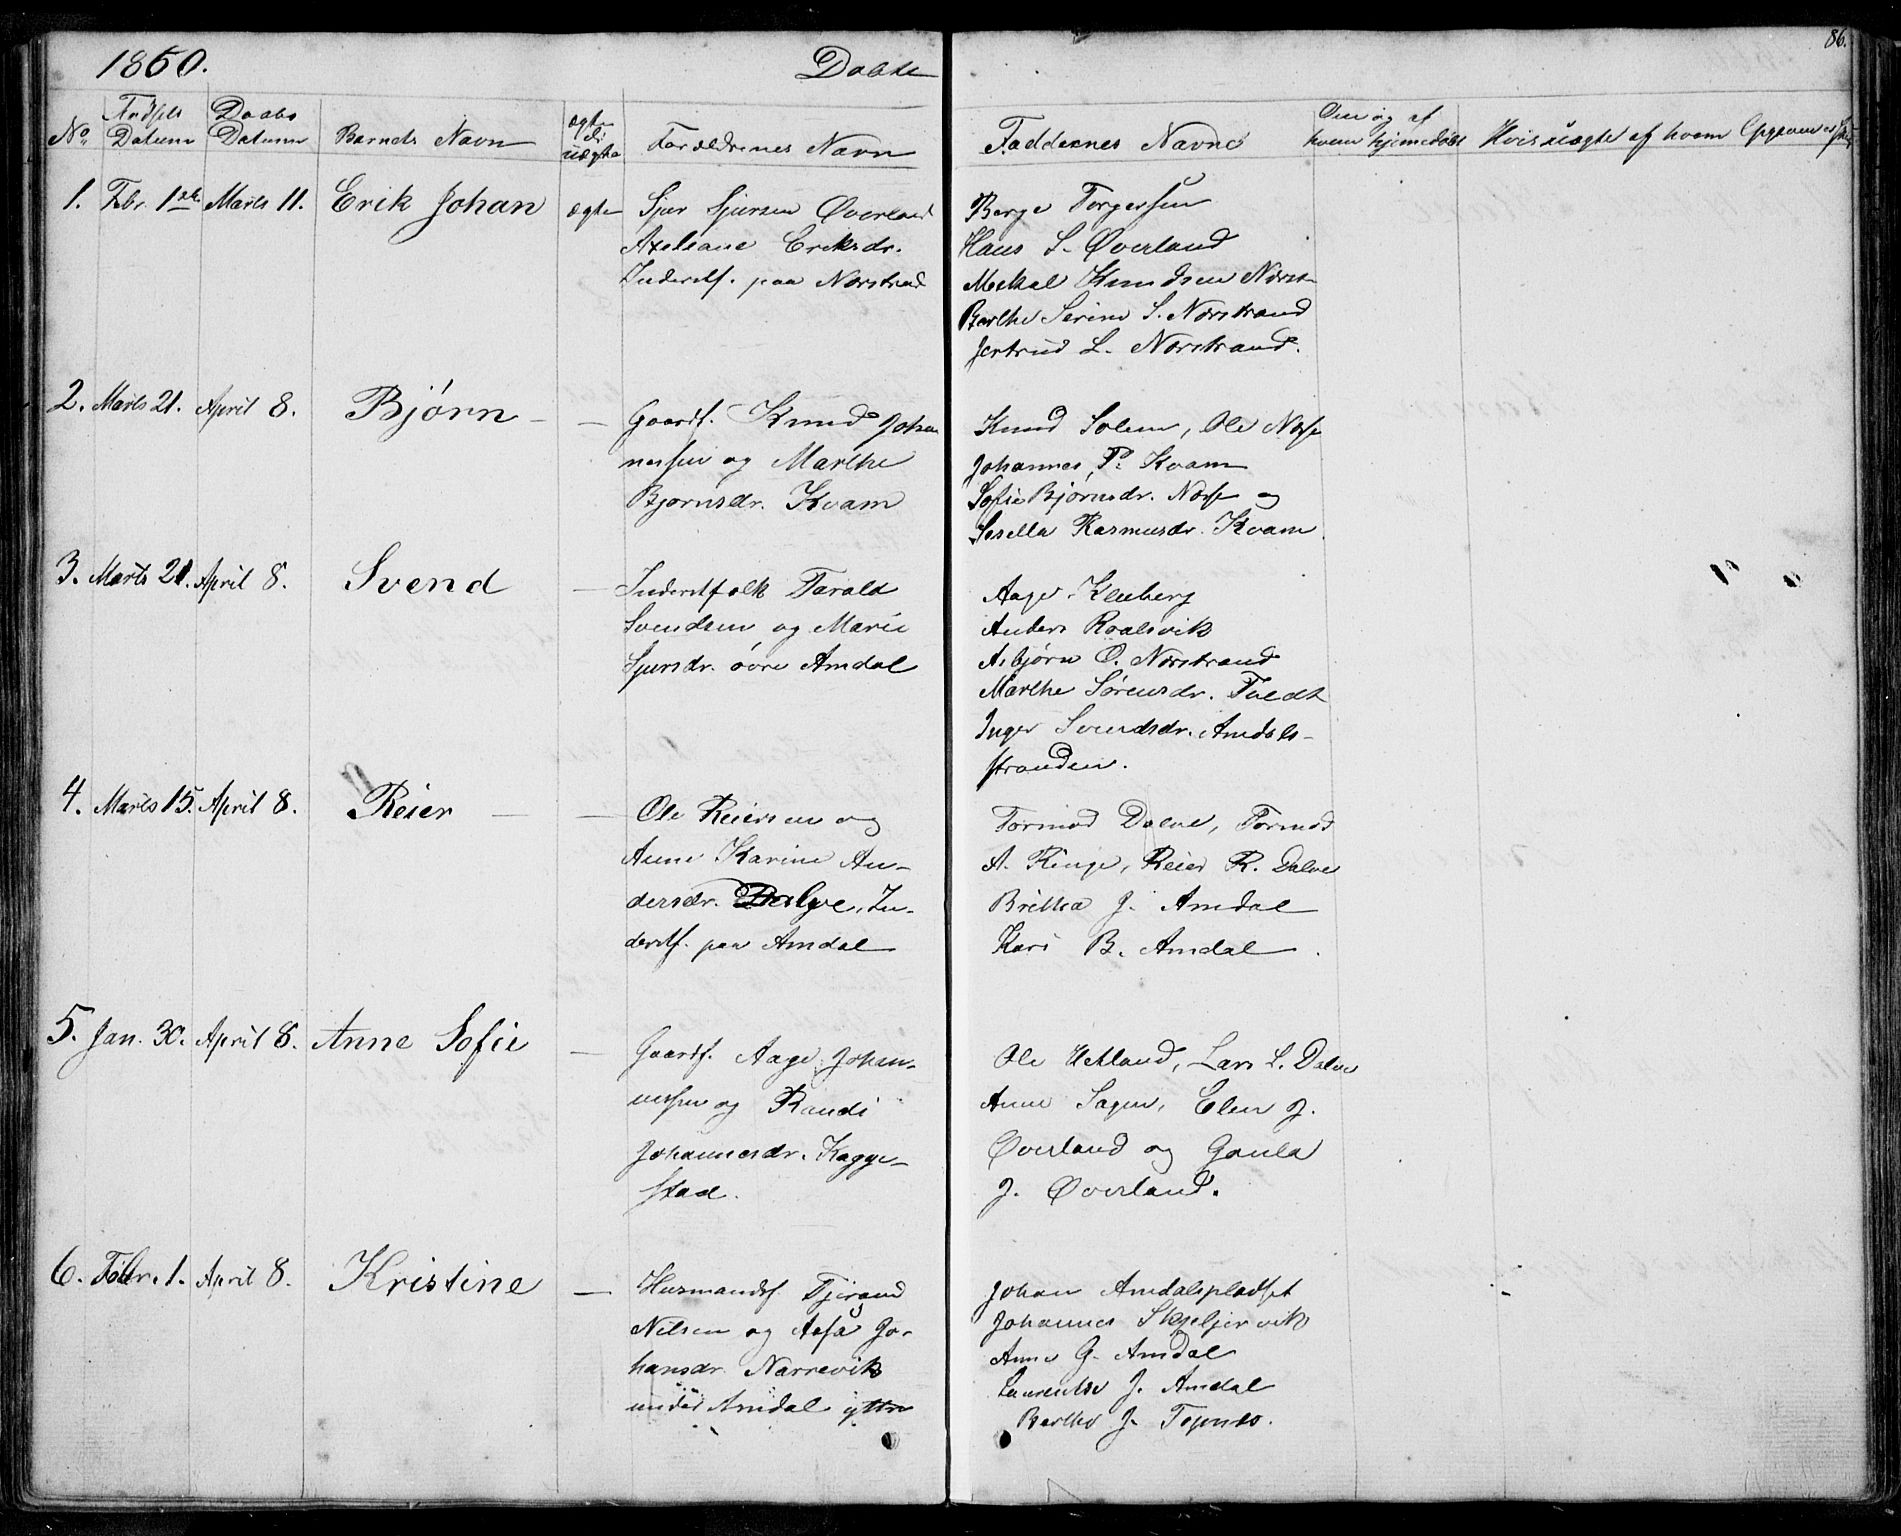 1860.
Døbte
86.
No
Fødsels Datum
Daabs Datum
Barnets Navn
ægte el. uægte
Forældrenes Navn
Faddernes Navne
Om og af hvem hjemmedøbt
Hvis uægte af hvem Opgiven er
1. Febr. 1ste Marts 11. Erik Johan ægte
Sjur Sjursen Øverland
Axeliane Eriksdr.
Inderstf. paa Norstrand
Berge Torgersen
Hans S. Øverland
Mekal Knudsen Norst
Berthe Serine S. Norstrand
Jertrud L. Norstrand.
2. Marts 21. April 8. Bjørn — —
Gaardf. Knud Johan
nessen og Marthe
Bjørnsdr. Kvam
Knud Solem, Ole Næsse
Johannes P. Kvam
Sofie Bjørnsdr. Næsse og
Sesella Rasmusdr. Kvam.
3. Marts 21. April 8. Svend —
Inderstfolk Tarald
Svendsen og Marie
Sjursdr. övre Amdal
Aage Kleiberg
Anders Roalsvik
Asbjørn O. Norstrand
Marthe Sörensdr. Tvedt
Inger Svendsdr. Amdals-
stranden.
4. Marts 15. April 8. Reier — —
Ole Reiersen og
Anne Karine An-
dersdr. Dalve, In-
derstf. paa Amdal
Tormod Dalve, Tormod
A. Ringe, Reier R. Dalve
Britha J. Amdal
Kari B. Amdal.
5. Jan. 30. April 8. Anne Sofie —
Gaardf. Aage Johan-
nessen og Randi
Johannesdr. Kagge-
stad.
Ole Hetland, Lars L. Dalve
Anne Sagen, Elen J.
Øverland og Gaula
J. Øverland.
6. Febr. 1. April 8. Kristine —
Husmandsf. Tjerand
Nilsen og Aasa Jo-
hansdr. Narrevik
under Amdal yttre
Johan Amdalspladset
Johannes Skjeljervik
Anne G. Amdal
Laurentse J. Amdal
Berthe J.